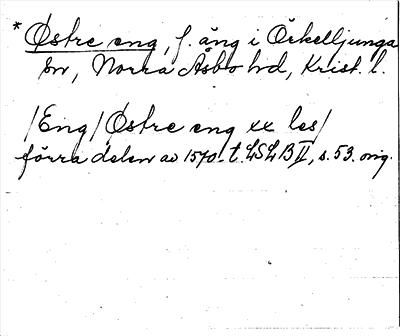 * Østre eng, f. äng i Örkelljunga
sn, Norra Åsbo hd, Krist. l.
/Eng/ Østre eng xx les/
förra delen av 1570-t. LSLB II, s. 53. orig.